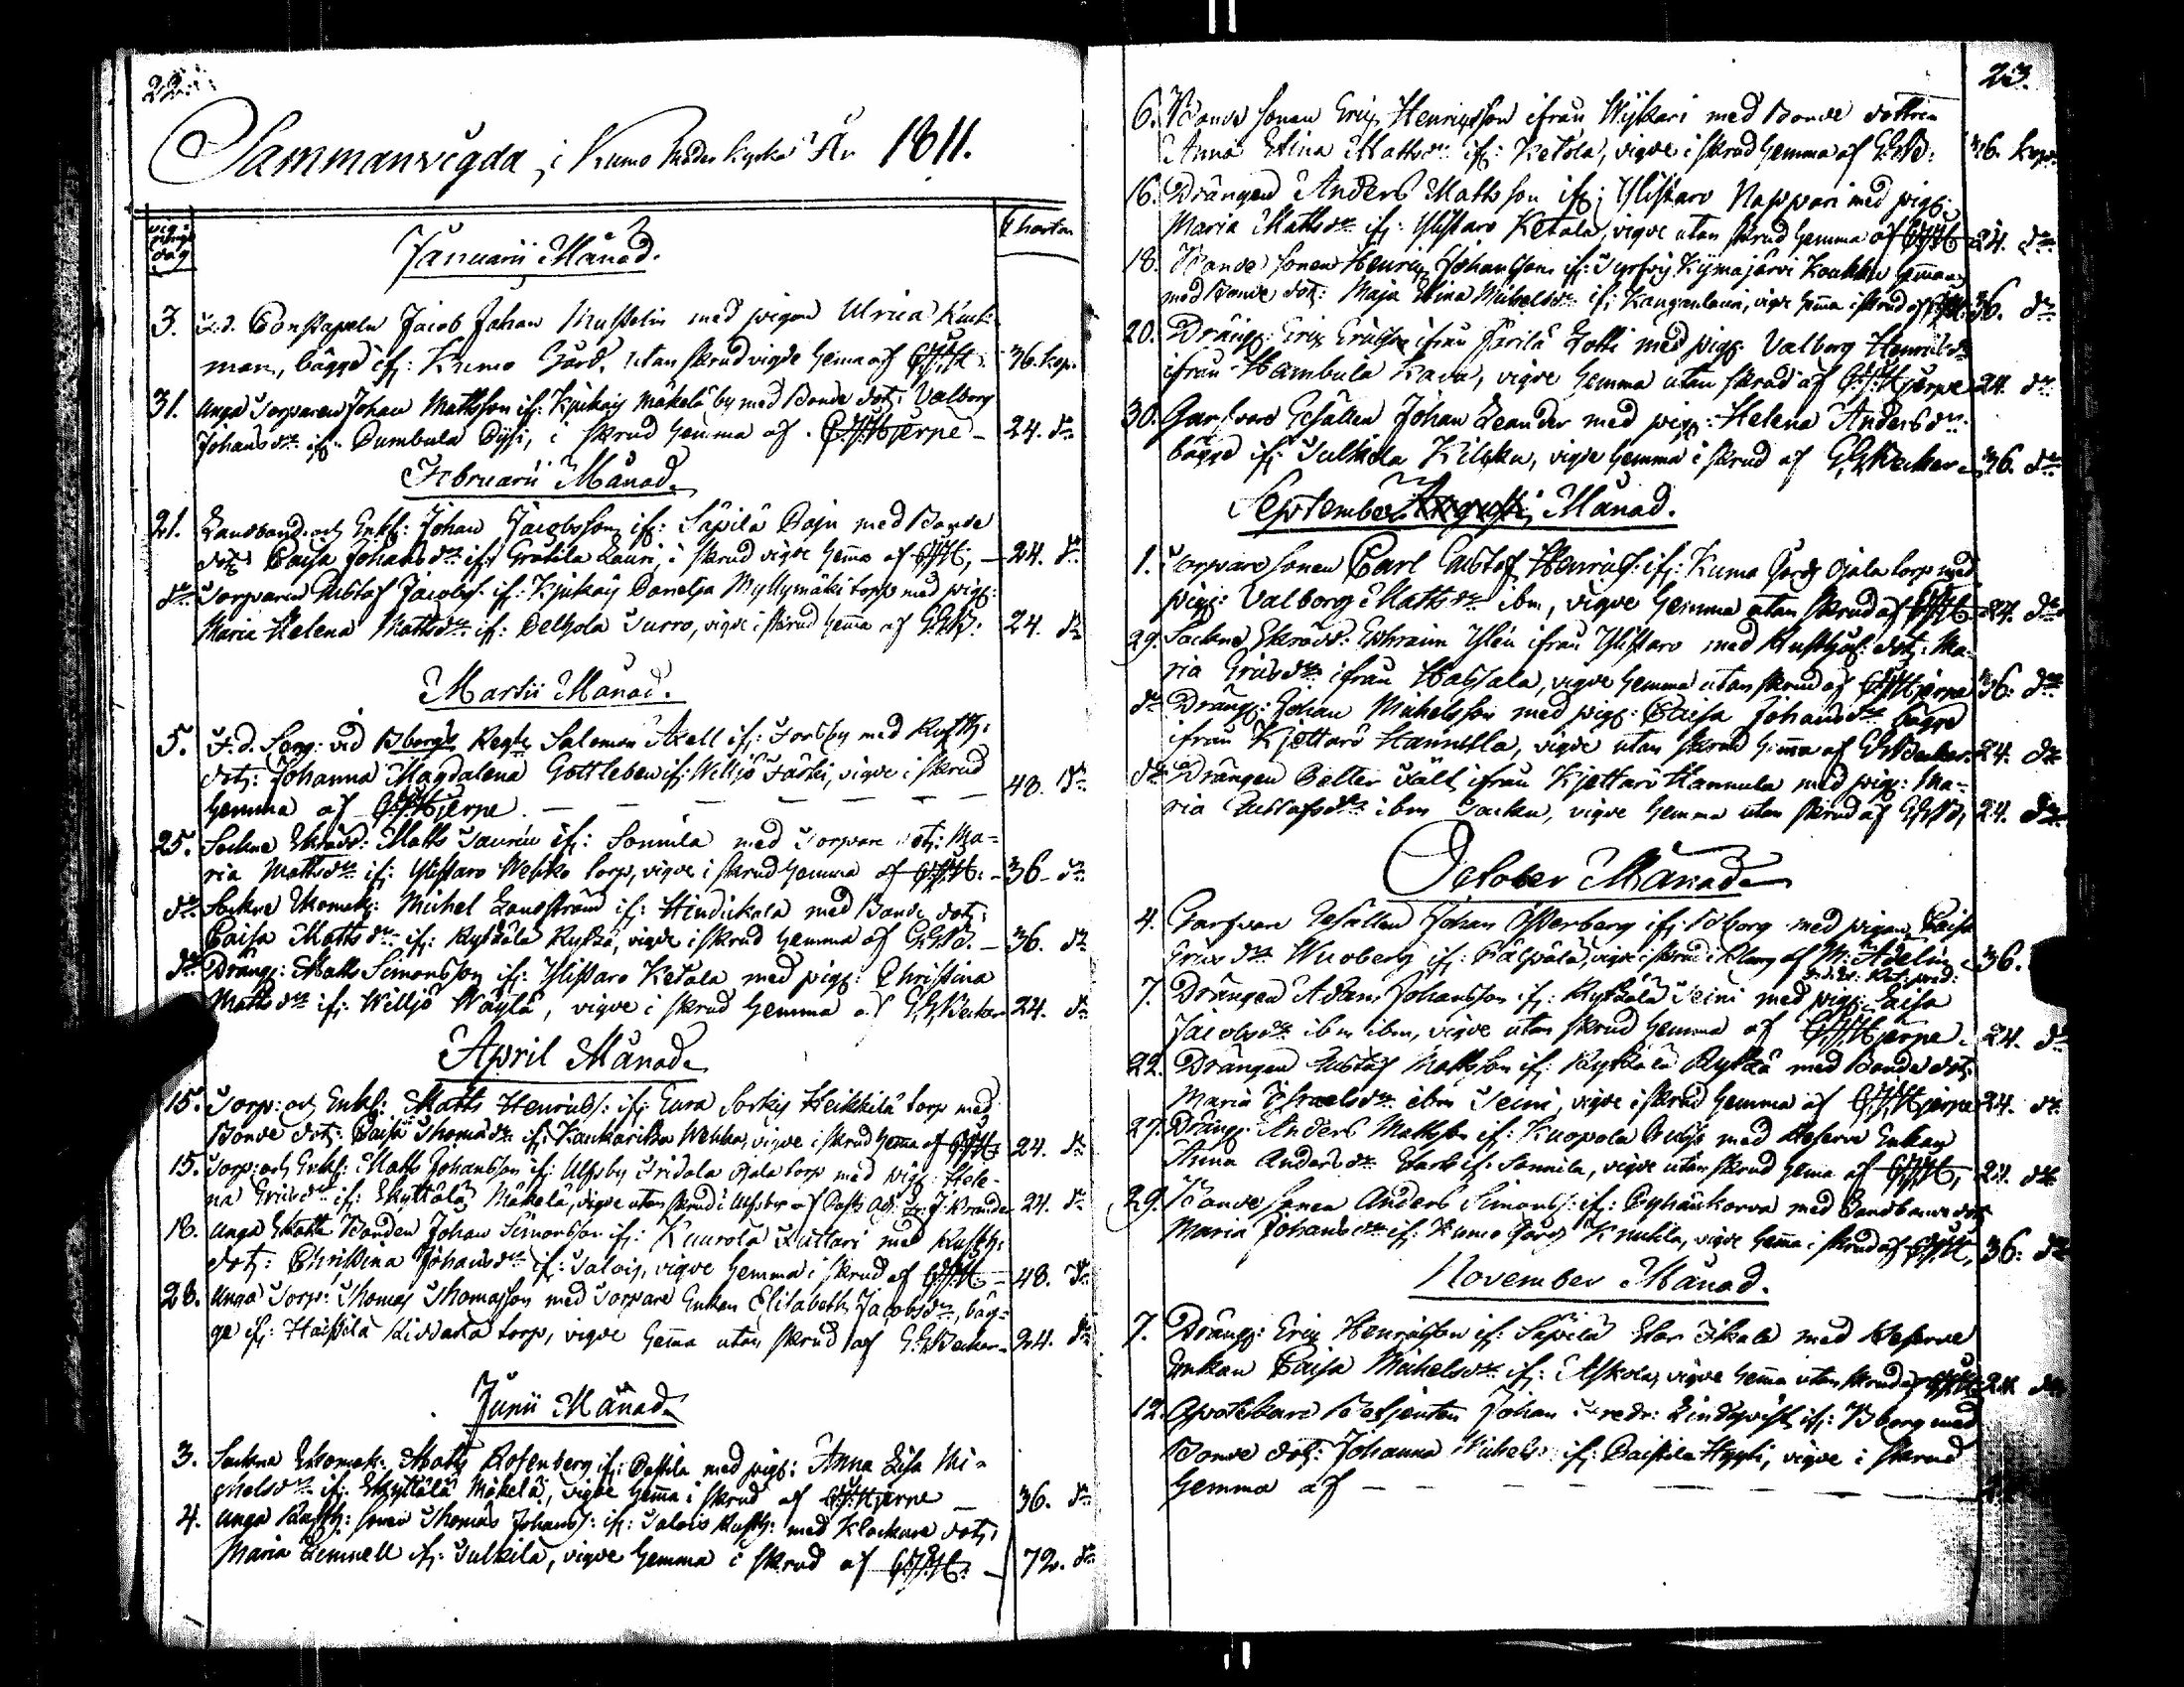 22.
Sammanvigda, i Kumo Moder Kyrka År 1811.
vig-
nings
dag
Charton
Januarii Månad.
3. F.d. Constapeln Jacob Johan Musselin med pigan Ulrica Kuck-
man, bägge if: Kumo Gård, utan skrud vigde hema af G.J.H. 36. kop.
31. unga Torparen Johan Mattsson if: Kjukais Mäkelä by med Bonde dotr: Valborg
Johansdr if: Pumbula Pysi, i skrud hemma af G.J.Hjerpe - 24. do
Februarii Månad.
21. Landbond. och Enkl: Johan Jacobsson if: Säpilä Paju med Bonde
dotr Caisa Johansdr if: Gratila Lauri, i skrud vigde hema af G.J.H. - 24. do
do Torparen Gustaf Jacobss. if: Kjukais Danelja Myllymäki torp med pigz:
Maria Helena Mattsdr if: Pelhola Turro, vigde i skrud hema af G.G.B: 24. do
Martii Månad.
5. F.d. Serg: vid Bborgs Regte Salomon Axell if: Forsby med Rusth:
dotr: Johanna Magdalena Gottleben if: Willjo Färki, vigde i skrud
hemma af G.J.Hjerpe. - - - - - 48. do
25. Sockne Skrädd: Matts Taurén if: Sonnila med Torpare dotr: Ma-
ria Mattsdr if: Ylistaro Wehko torp, vigde i skrud hemma af G.J.H: - 36 - do
do Sockne Skomak: Michel Landström if: Hindickala med Bonde dotr:
Caisa Mattsdr if: Ryskälä Ryskä, vigde i skrud hemma af G.G.B. - 36. do
do Drängz: Matts Simonsson if: Ylistaro Ketala med pigz: Christina
Mattsdr if: Willjo Wäylä, vigde i skrud hemma af G.G.Becker 24. do
April Månad.
15. Torp: och Enkl: Matts Henricss: if: Eura Sorkis Heikkilä torp med
Bonde dotr: Caisa Thomasdr if: Kaukaritza Wehka, vigde i skrud hema af G.J.H. 24. do
15. Torp: och Enkl: Matts Johansson if: Ulfsby Fridala Ojala torp med pigz: Hele-
na Ericsdr if: Skyttälä Mäkelä, vigde utan skrud i Ulfsby af Past: Adj: J: Krander 24. do
18. unga Skatte Bonden Johan Simonsson if: Kaurola Luttari med Rusth:
dotr: Christina Johansdr if: Talois, vigde hemma i skrud af G.J.H. - 48. do
28. unga Torp: Thomas Thomasson med Torpare Enkan Elisabeth Jacobsdr, bäg-
ge if: Haistila Kiddarla torp, vigde hema utan skrud af G.G.Becker - 24. do
Junii Månad.
3. Sockne Skomak: Matts Rosenberg if: Peskila med pigz: Anna Lisa Mi-
chelsdr if: Skyttälä Mäkelä, vigde hema i skrud af G.J.Hjerpe - 36. do
4. unga Rusth: sonen Thomas Johanss: if: Talois Rusth: med Klockare dotr:
Maria Lemnell if: Tulkila, vigde hemma i skrud af G.J.H. - 72. do
23.
6. Bonde sonen Eric Henricsson ifrån Wijkari med Bonde dottren
Anna Stina Mattsdr if: Ketola, vigde i skrud hemma af G.G.B: 36. kop.
16. Drängen Anders Mattsson if: Ylistaro Nappari med pigz:
Maria Mattsdr if: Ylistaro Ketala, vigde utan skrud hemma af G.J.H. 24. do
18. Bonde sonen Henric Johansson if: Tyrfvis Kijmajärvi Koukku hemman
med Bonde dotr: Maja Stina Michelsdr if: Kangenlauri, vigde hema i skrud af G.J.H. 36. do
20. Drängz: Eric Ericsson ifrån Järilä Lotti med pigz: Valborg Henricsdr
ifrån Hambula Kava, vigde hemma utan skrud af G.J.Hjerpe 24. do
30. Garfvare Gesällen Johan Leander med pigz: Helena Andersdr
bägge if: Tulkila Kilpku, vigde hemma i skrud af G.G.Becker - 36. do
September Augusti Månad.
1. Torpare sonen Carl Gustaf Henricss: if: Kumo Gårds Ojala torp med
pigz: Valborg Mattsdr ibm, vigde hemma utan skrud af G.J.H. 24. do
29. Sockne Skrädd: Ephraim Ylén ifrån Ylistaro med Rusthål: dotr: Ma-
ria Ericsdr ifrån Hassala, vigde hemma utan skrud af G.J.Hjerpe 36. do
do Drängz: Johan Michelsson med pigz: Caisa Johansdr bägge
ifrån Kjettaro Hannula, vigde utan skrud hemma af G.G.Becker 24. do
do Drängen Petter Fält ifrån Kjettaro Hannula med pigz: Ma-
ria Gustafsdr ibm Tacku, vigde hemma utan skrud af G.G.B, 24. do
October Månad.
4. Garfvare Gesällen Johan Österberg if: Bborg med pigan Caisa
Ericsdr Winberg if: Pälpälä, vigde i skrud i af M: Adelin 36.
7. Drängen Adam Johansson if: Ryskälä Seini med pigz: Caisa
Jacobsdr ibm ibm, vigde utan skrud hemma af G.J.Hjerpe. 24. do
22. Drängen Gustaf Mattsson if: Ryskälä Ryskä med Bonde dotr:
Maria Israelsdr ibm Seini, vigde i skrud hemma af G.J.Hjerpe 24. do
27. Drängz: Anders Mattsson if: Kuopola med Reserve Enkan
Anna Andersdr Stark if: Sonnila, vigde utan skrud hema af G.J.H, 24. do
29. Bonde sonen Anders Simonss: if: Pyhänkorva med Landbonde dotr
Maria Johansdr if: Kumo Gård Knutila, vigde hema i skrud af G.J.H, 36. do
November Månad.
7. Drängz: Eric Henricsson if: Säpilä Stor Ikala med Reserve
Enkan Caisa Michelsdr if: Askola, vigde hema utan skrud af G.J.H. 24. do
12. Apotekare Betjenten Johan Fredr: Lindqvist if: Bborg med
Bonde dotr: Johanna Michelsdr if: Paistila Hyyti, vigde i skrud
hemma af - - - - -